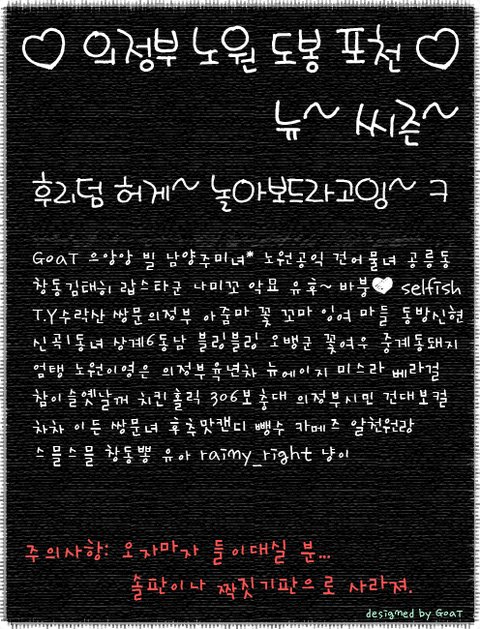 ♡ 의정부 노원 도봉 포천 ♡
뉴~ 씨즌~
후리덤 허게~ 놀아보드라고잉~ ㅋ
GoaT 으앙앙 빌 남양주미녀* 노원공익 건어물녀 공릉동
창동김태희 랍스타군 나미꼬 악묘 유후~ 바붕♥ selfish
T.Y수락산 쌍문의정부 아줌마 꽃 꼬마 잉여 마들 동방신현
신곡1동녀 상계6동남 블링블링 오뱅군 꽃여우 중계동돼지
엄탱 노원이영은 의정부육년차 뉴에이지 미스라 베라걸
참이슬옛날꺼 치킨홀릭 306보충대 의정부시민 건대보컬
차차 이든 쌍문녀 후추맛캔디 빵수 카메즈 알천원랑
스믈스믈 창동뽕 유아 rainy_right 냥이
주의사항: 오자마자 들이대실 분...
솔판이나 짝짓기판으로 사라져.
designed by GoaT